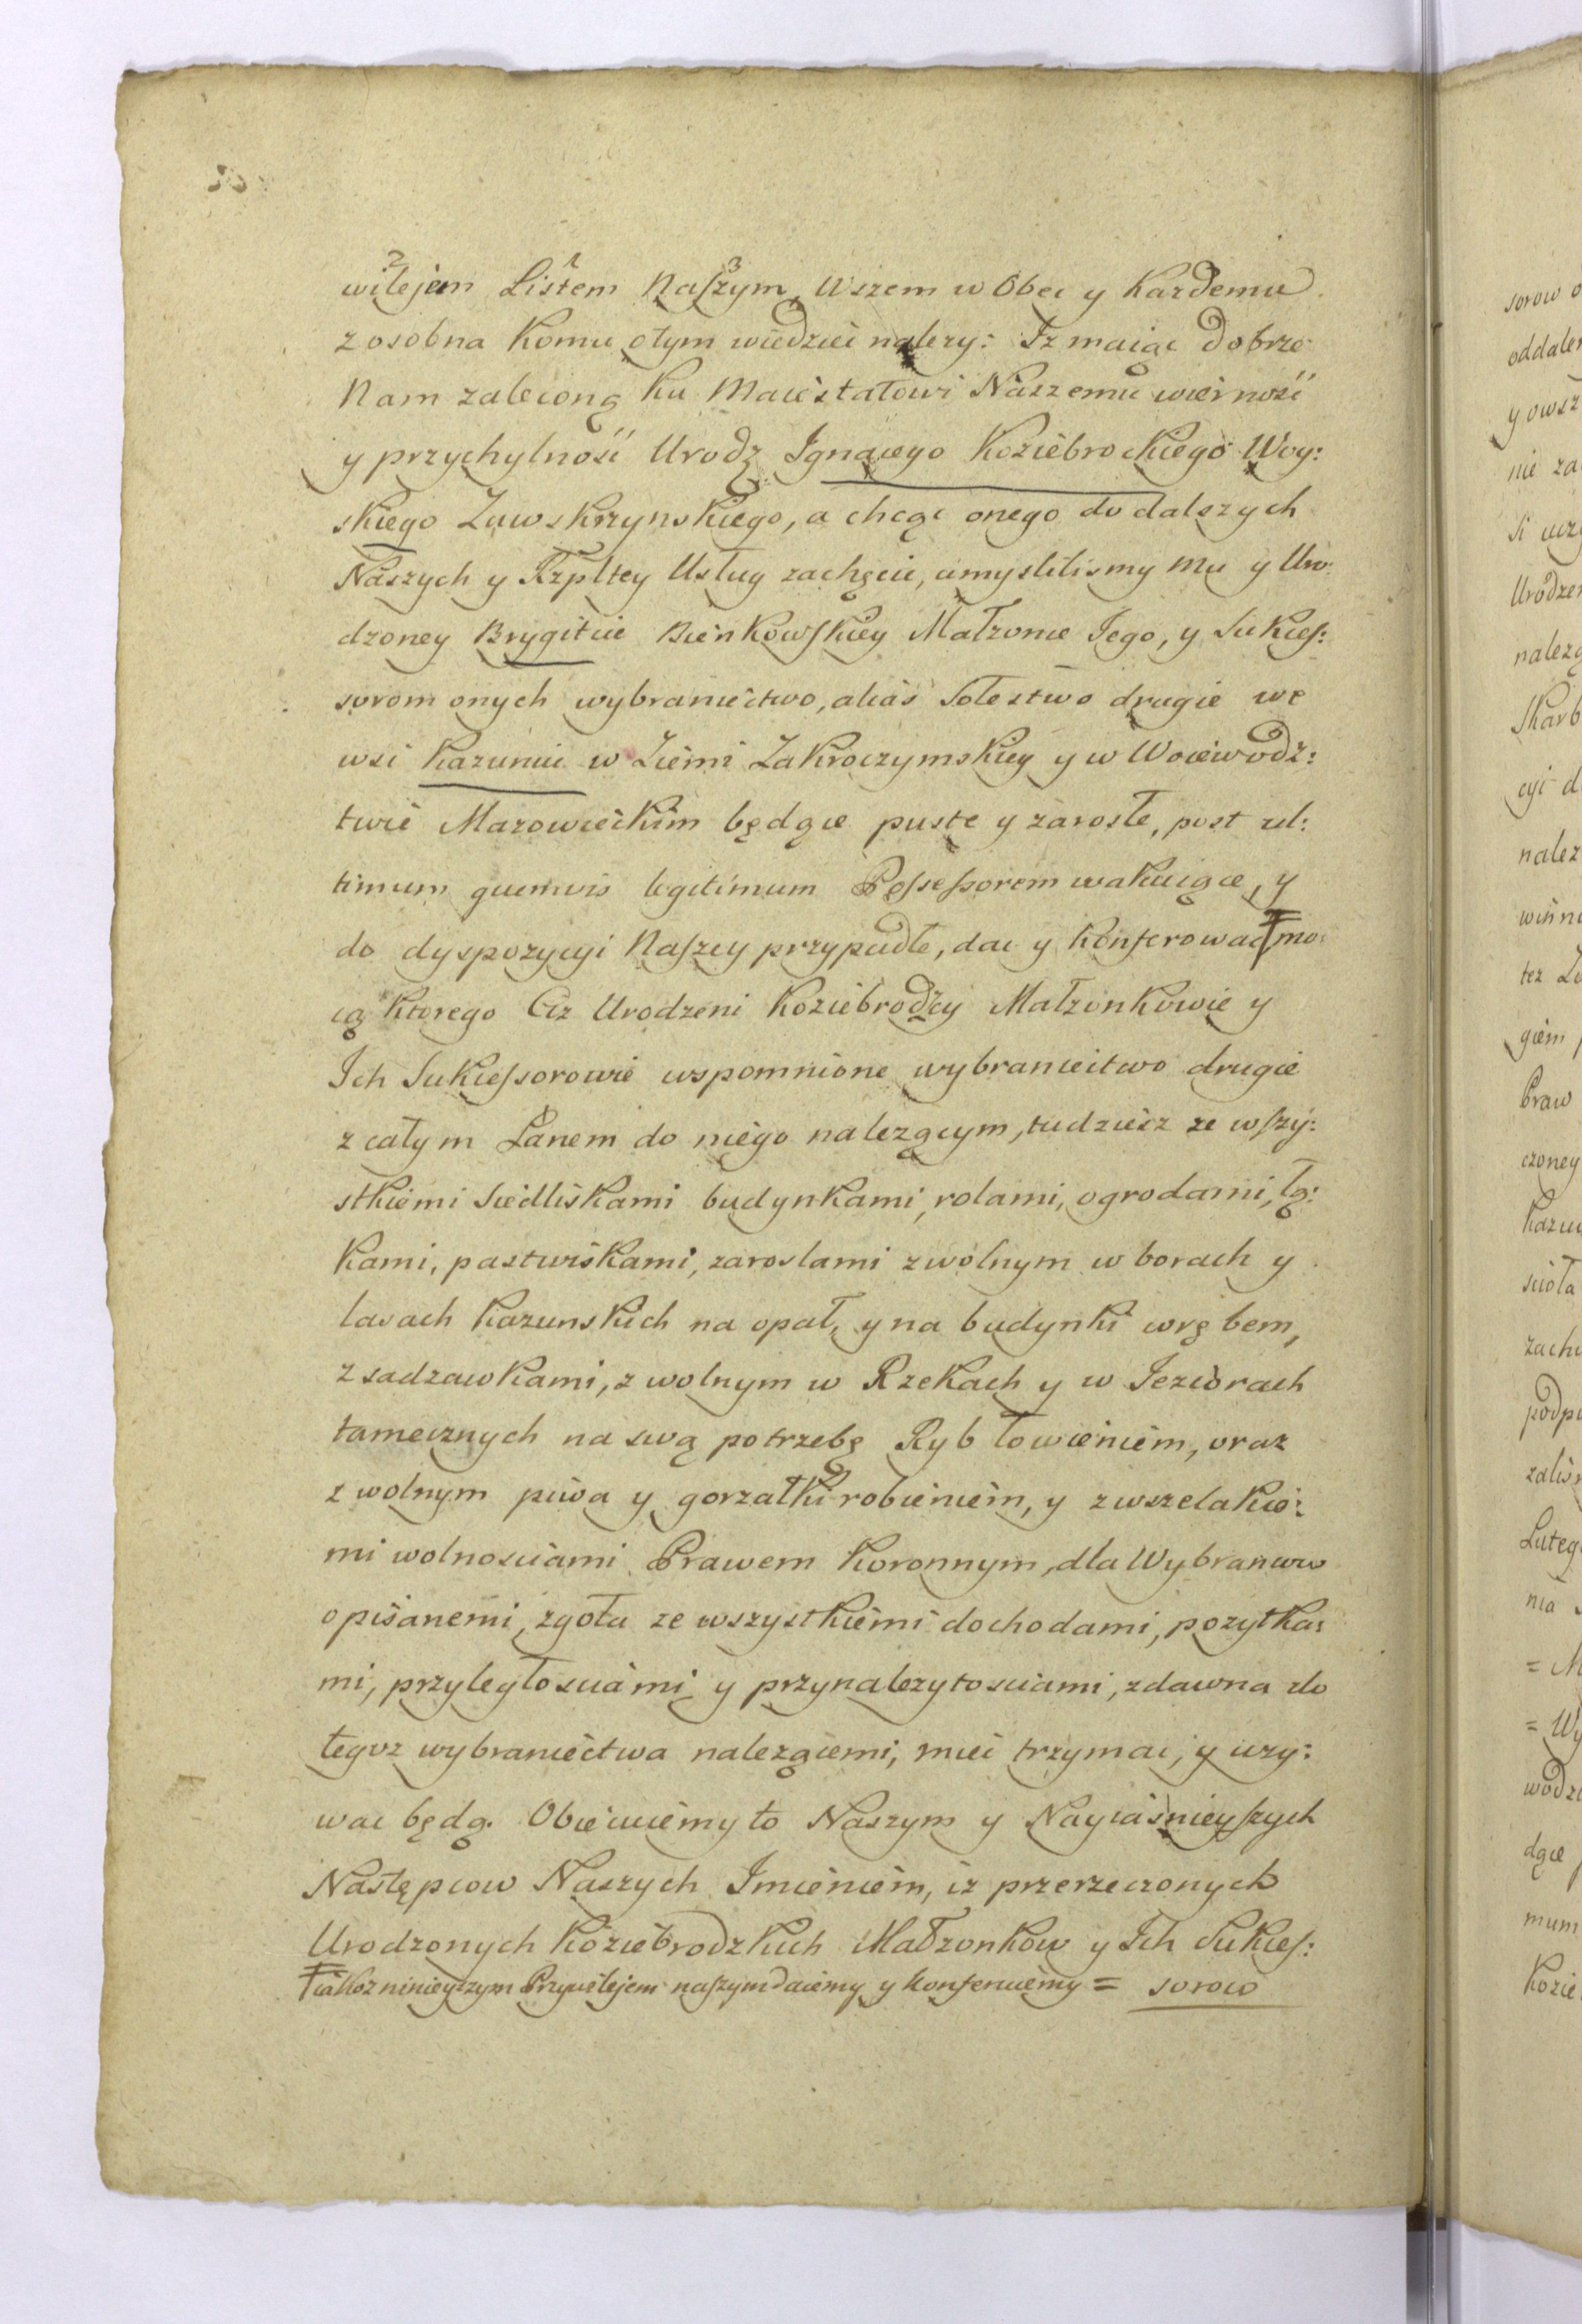 wilejem Listem Naszym, Wszem w Obec y Kazdemu
zosobna Komu otym wiedziec nalezy: Iz maiąc dobrze
Nam zaleconą Ku Maiestatowi Naszemu wiernosć
y przychylnosć Urodz: Ignacego Koziebrockiego Woy:
skiego Zawskrzynskiego, a chcąc onego do dalszych
Naszych y Rzpltey Usług zachęcic, umyslilismy mu y Uro:
dzoney Brygitcie Bienkowskiey Małzonce Jego, y Sukces:
sorom onych wybraniectwo, alias Sołestwo drugie we
wsi Kazuniu w Ziemi Zakroczymskiey y w Woiewodz:
twie Mazowieckim będące puste y zarosłe, post ul:
timum quemvis legitimum Possessorem wakuiące, y
do dyspozycyi Naszey przypadłe, dac y Konferowac Ŧ mo:
cą Ktorego Ciz Urodzeni Koziebrodzcy Małzonkowie y
Ich Sukcessorowie wspomnione wybraniectwo drugie
z całym Łanem do niego nalezącym, tudziesz ze wszy:
stkiemi Siedliskami budynkami, rolami, ogrodami, łą:
kami, pastwiskami, zaroslami z wolnym w borach y
lasach Kazunskich na opał, y na budynki wrębem,
z sadzawkami, z wolnym w Rzekach y w Jeziorach
tamecznych na swą potrzebę Ryb łowieniem, oraz
z wolnym piwa y gorzałki robieniem, y z wszelakie:
mi wolnosciami Prawem Koronnym, dla Wybrancow
opisanemi, zgoła ze wszystkiemi dochodami, pozytka:
mi, przyległosciami y przynalezytosciami, zdawna do
tegoz wybraniectwa nalezącemi, miec trzymac, y uzy:
wac będą. Obiecuiemy to Naszym y Nayiasnieyszych
Następcow Naszych Imieniem, iz przerzeczonych
Urodzonych Koziebrodzkich Małzonkow y Ich Sukces:
Ŧ iakoz ninieyszym Przywilejem naszym daiemy y konferuiemy = sorow